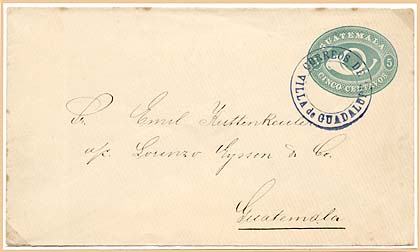 GUATEMALA
5
CINCO CENTAVOS
CORREOS DE
VILLA de GUADALU
Sr. Emil
a/c. Lorenzo Eyssen & Co.
Guatemala